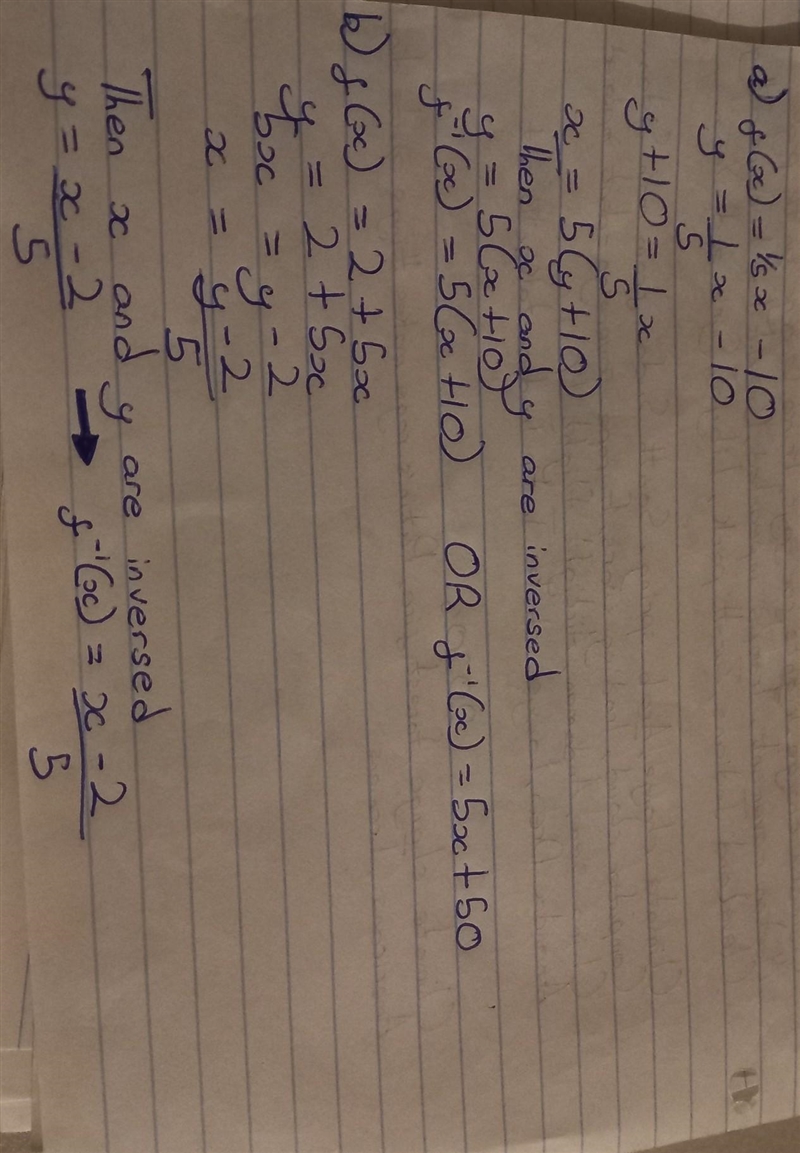 a) f(x) = 1/5 x - 10
y = 1/5 x - 10
y + 10 = 1/5 x
x = 5(y + 10)
Then x and y are inversed
y = 5(x + 10)
f⁻¹(x) = 5(x + 10) OR f⁻¹(x) = 5x + 50
b) f(x) = 2 + 5x
y = 2 + 5x
5x = y - 2
x = y - 2 / 5
Then x and y are inversed
y = x - 2 / 5 → f⁻¹(x) = x - 2 / 5